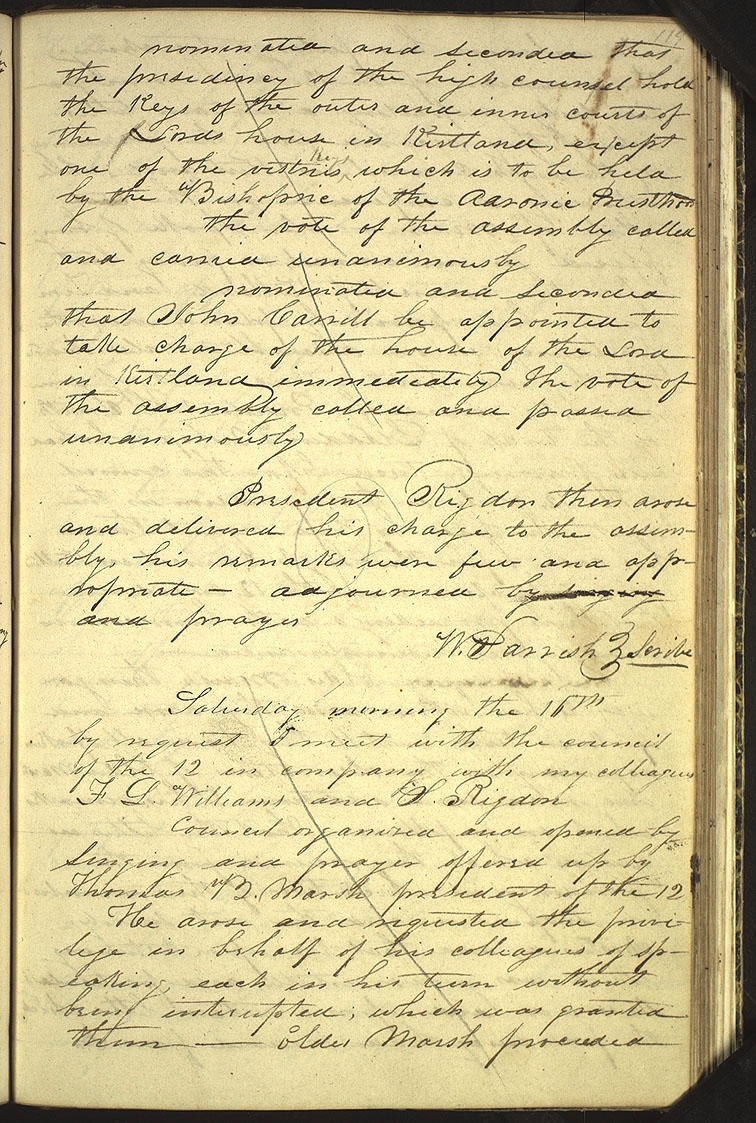 119
nominated and seconded that
the presidincy of the high counsel hold
the Keys of the outer and inner courts of
the Lords house in Kirtland, except
one of the vistris Keys which is to be held
by the Bishopric of the Aaronic Priesthood
the vote of the assembly called
and carried unanimously
nominated and seconded
that John Carrill be appointed to
take charge of the house of the Lord
in Kirtland immediately the vote of
the assembly called and passed
unanimously
President Rigdon then arose
and delivered his charge to the assem-
bly, his remarks were few and app-
ropriate— adjourned by singing
and prayer
W. Parrish Scribe
Saturday morning the 16th
by request I meet with the council
of the 12 in company with my colleagues
F G Williams and S. Rigdon
Council organised and opened by
singing and prayer offered up by
Thomas B. Marsh president of the 12
He arose and requested the privi-
lege in behalf of his colleagues of sp-
eaking, each in his turn without
being interupted; which was granted
them — Elder Marsh proceeded